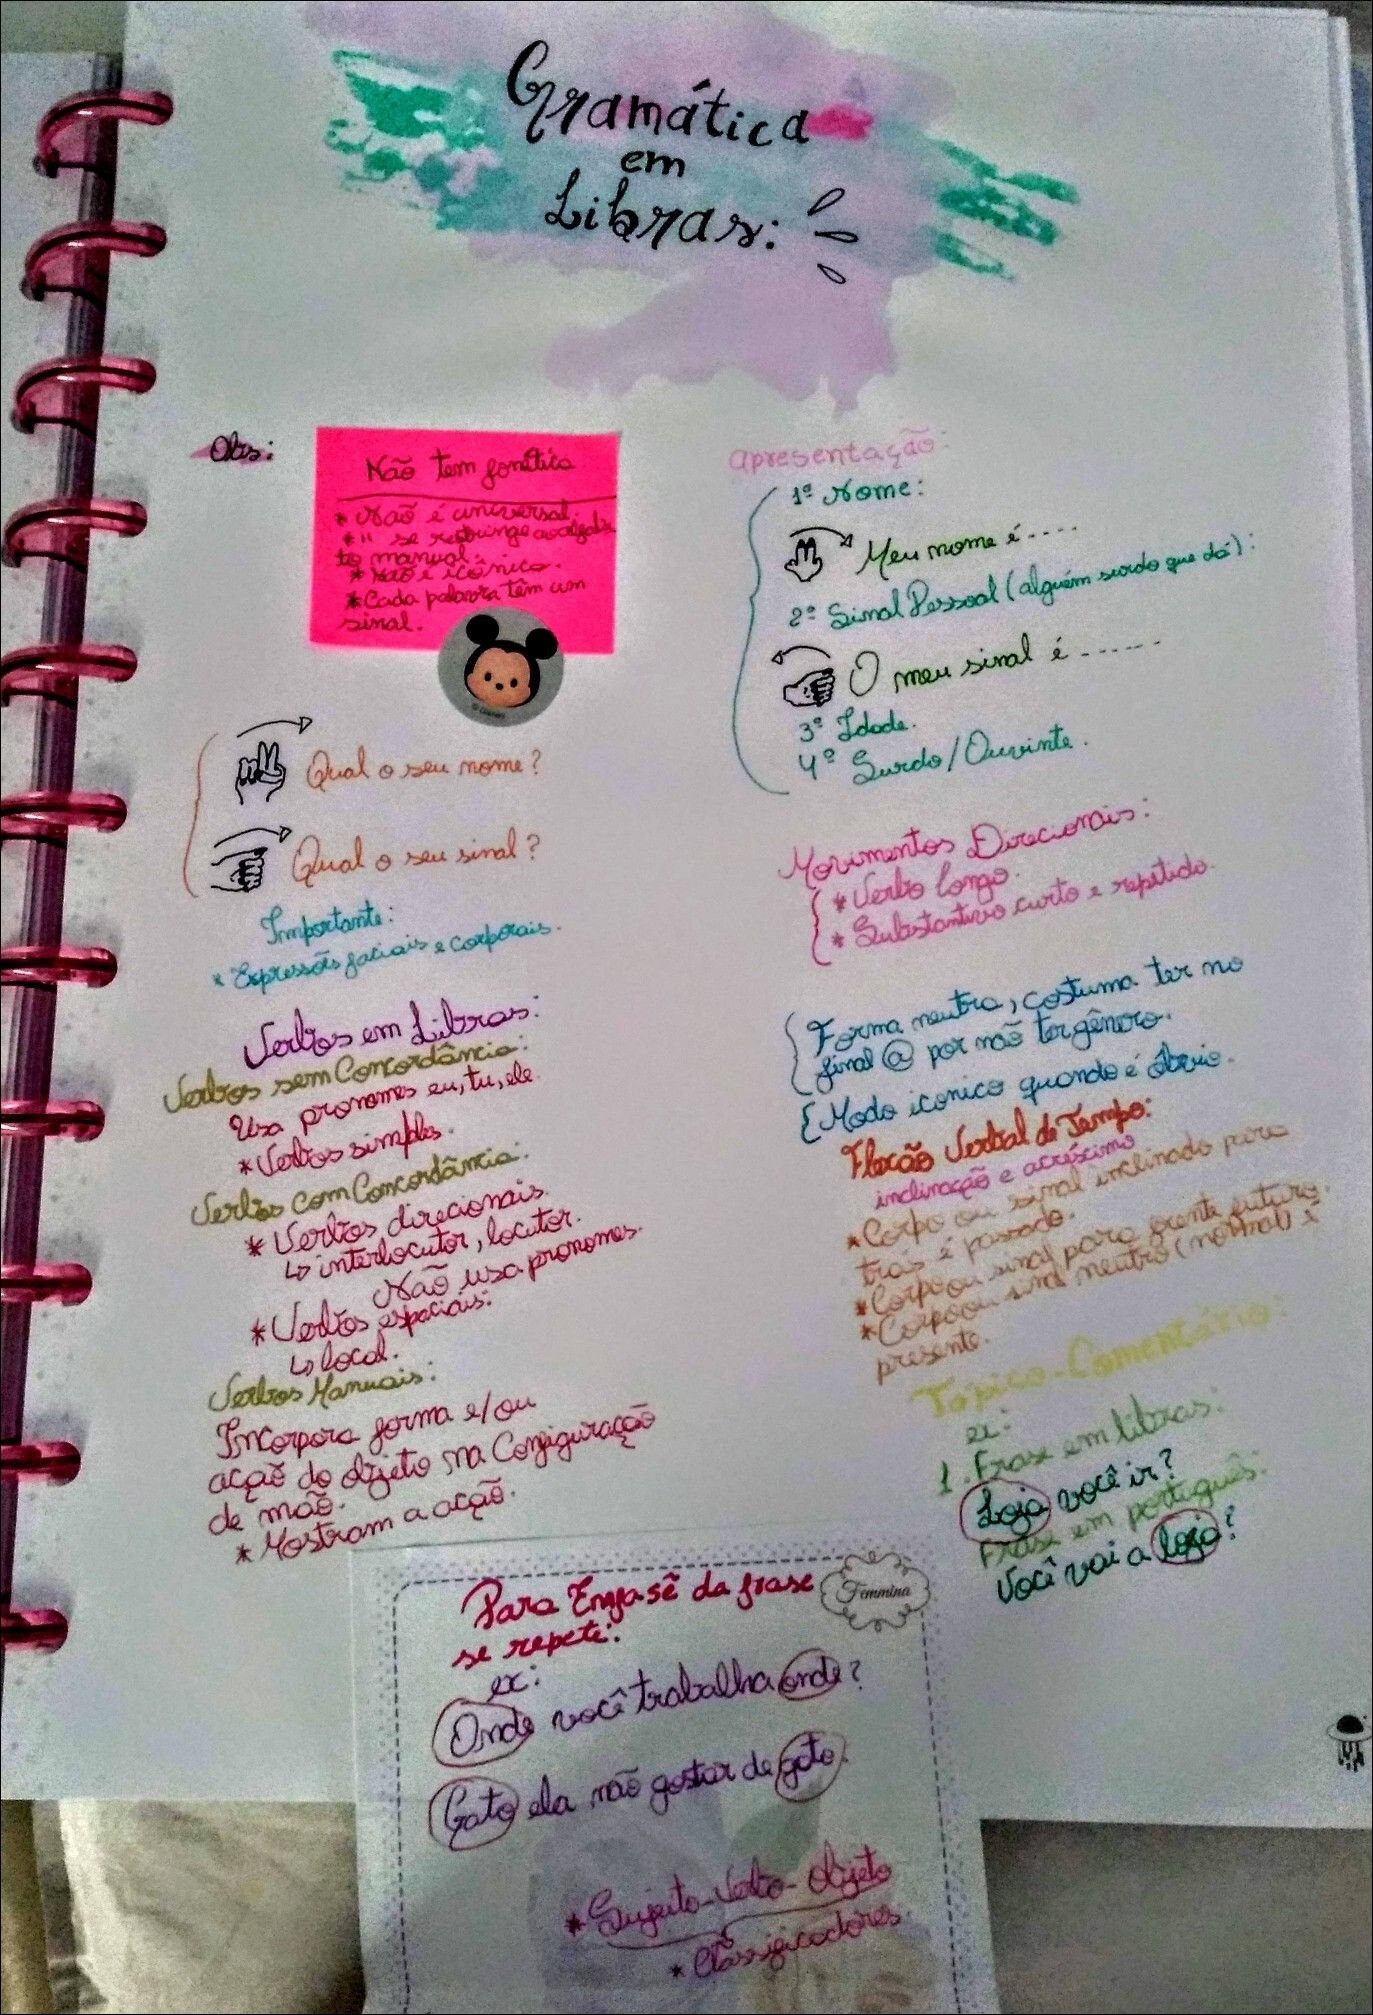 Gramática
em
Libras:
Obs:
Não tem fonética
* Naõ é universal.
* " se restringe ao alfabe
to manual.
* Naõ é icônico.
* Cada palavra têm um
sinal.
Qual o seu nome?
Qual o seu sinal?
Importante:
* Expressões faciais e corporais.
Verbos em Libras:
Verbos sem Concordância:
Usa pronomes eu, tu, ele.
* Verbos simples.
Verbos com Concordância:
* Verbos direcionais.
↳ interlocutor, locutor.
Não usa pronomes.
* Verbos espaciais:
↳ local.
Verbos Manuais:
Incorpora forma e/ou
ação do objeto na Configuração
de mão.
* Mostram a ação.
apresentação:
1º Nome:
Meu nome é ....
2º Sinal Pessoal (alguém surdo que dá):
O meu sinal é ......
3º Idade.
4º Surdo/Ouvinte.
Movimentos Direcionais:
* Verbo longo.
* Substantivo curto e repetido.
Forma neutra, costuma ter no
final @ por não ter gênero.
Modo iconico quando é óbvio.
Flexão Verbal de Tempo:
inclinação e acréscimo
* Corpo ou sinal inclinado para
trás é passado.
* Corpo ou sinal para frente futuro.
* Corpo ou sinal neutro (normal) é
presente.
Tópico-Comentário:
ex:
1. Frase em libras:
Loja você ir?
Frase em português:
Você vai a loja?
Para Enfasê da frase
se repete:
Femmina
ex:
Onde você trabalha onde?
Gato ela não gostar de gato.
* Sujeito-Verbo-Objeto
* Classificadores.